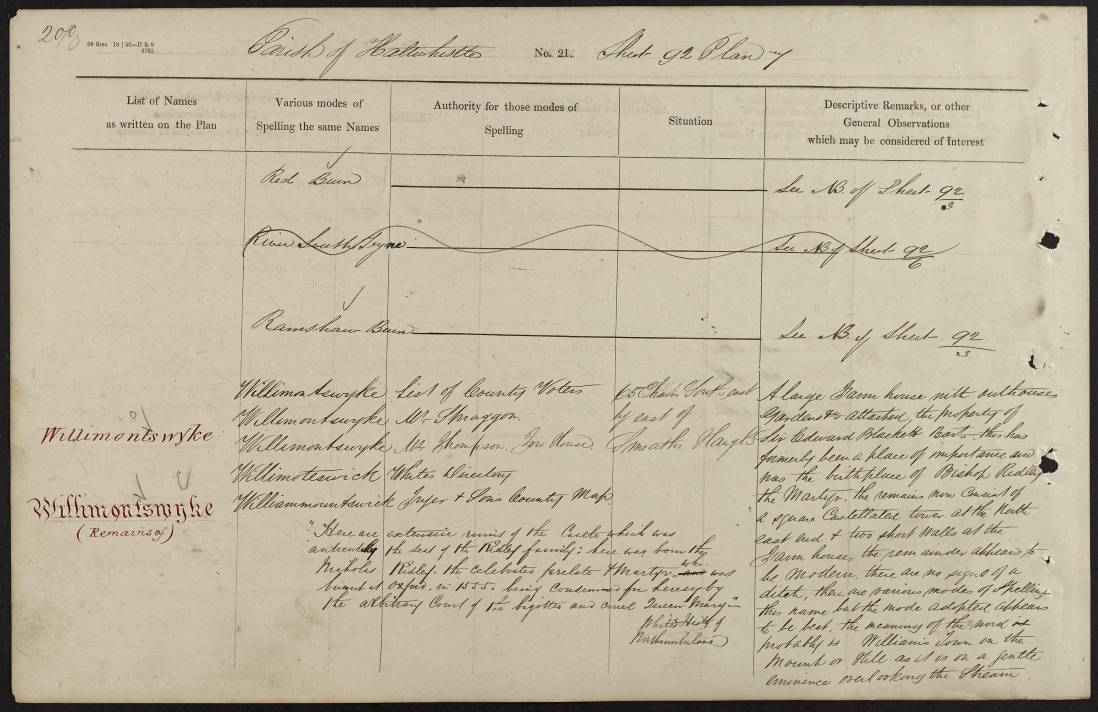 200
30 Rms 10 | 56—H & S
6705
Parish of Haltwhistle No. 21. Sheet 92 Plan 7
List of Names
as written on the Plan
Various modes of
Spelling the same Names
Authority for those modes of
Spelling
Situation
Descriptive Remarks, or other
General Observations
which may be considered of Interest
Red Burn See NB of Sheet 92/3
River South Tyne See NB of Sheet 92/6
Ramshaw Burn See NB of Sheet 92/
Willimontswyke
Willimontswyke
(Remains of)
Willimontswyke List of County Voters
Willimontswyke Mr. Smaggon.
Willimontswyke Mr Thompson. Tow House.
Willimoteswick Whites Directory
Williammountswick Fryer & Sons County Map.
65 Chains South east
by east of
Smaiths Haugh
A large Farm house with outhouses
Gardens &c attached, the property of
Sir Edward Blackett Bart. this has
formerly been a place of importance and
was the birthplace of Bishop Ridley
the Martyr. the remains now consist of
a square Castellated tower at the North
east end & two short Walls at the
Farm house, the remainder appears to
be Modern, there are no signs of a
ditch, there are various modes of Spelling
this name but the mode adopted appears
to be best. the meaning of the word
probably is William's Town on the
Mount or Hill as it is on a gentle
eminence overlooking the Stream
"Here are extensive ruins of the Castle which was
anticently the seat of the Ridley family: here was born the
Nicholas Ridley. the celebrated prelate & Martyr who was
burnt at Oxford. in 1555. being Condemned for heresy by
the arbitrary Court of the bigotted and cruel Queen Mary"
White's Hist of
Northumberland